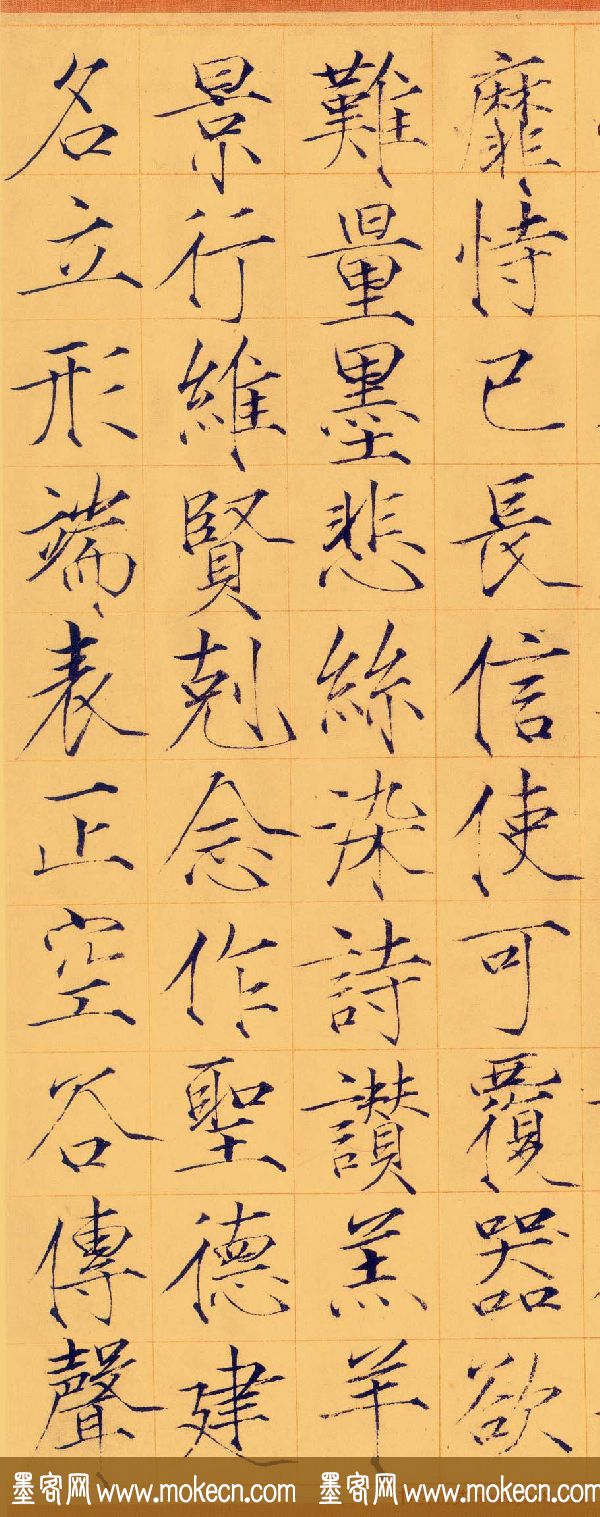 靡恃己長信使可覆器欲
難量墨悲絲染詩讃羔羊
景行維賢剋念作聖德建
名立形端表正空谷傳聲
墨客网 www.mokecn.com 墨客网 www.mokecn.com